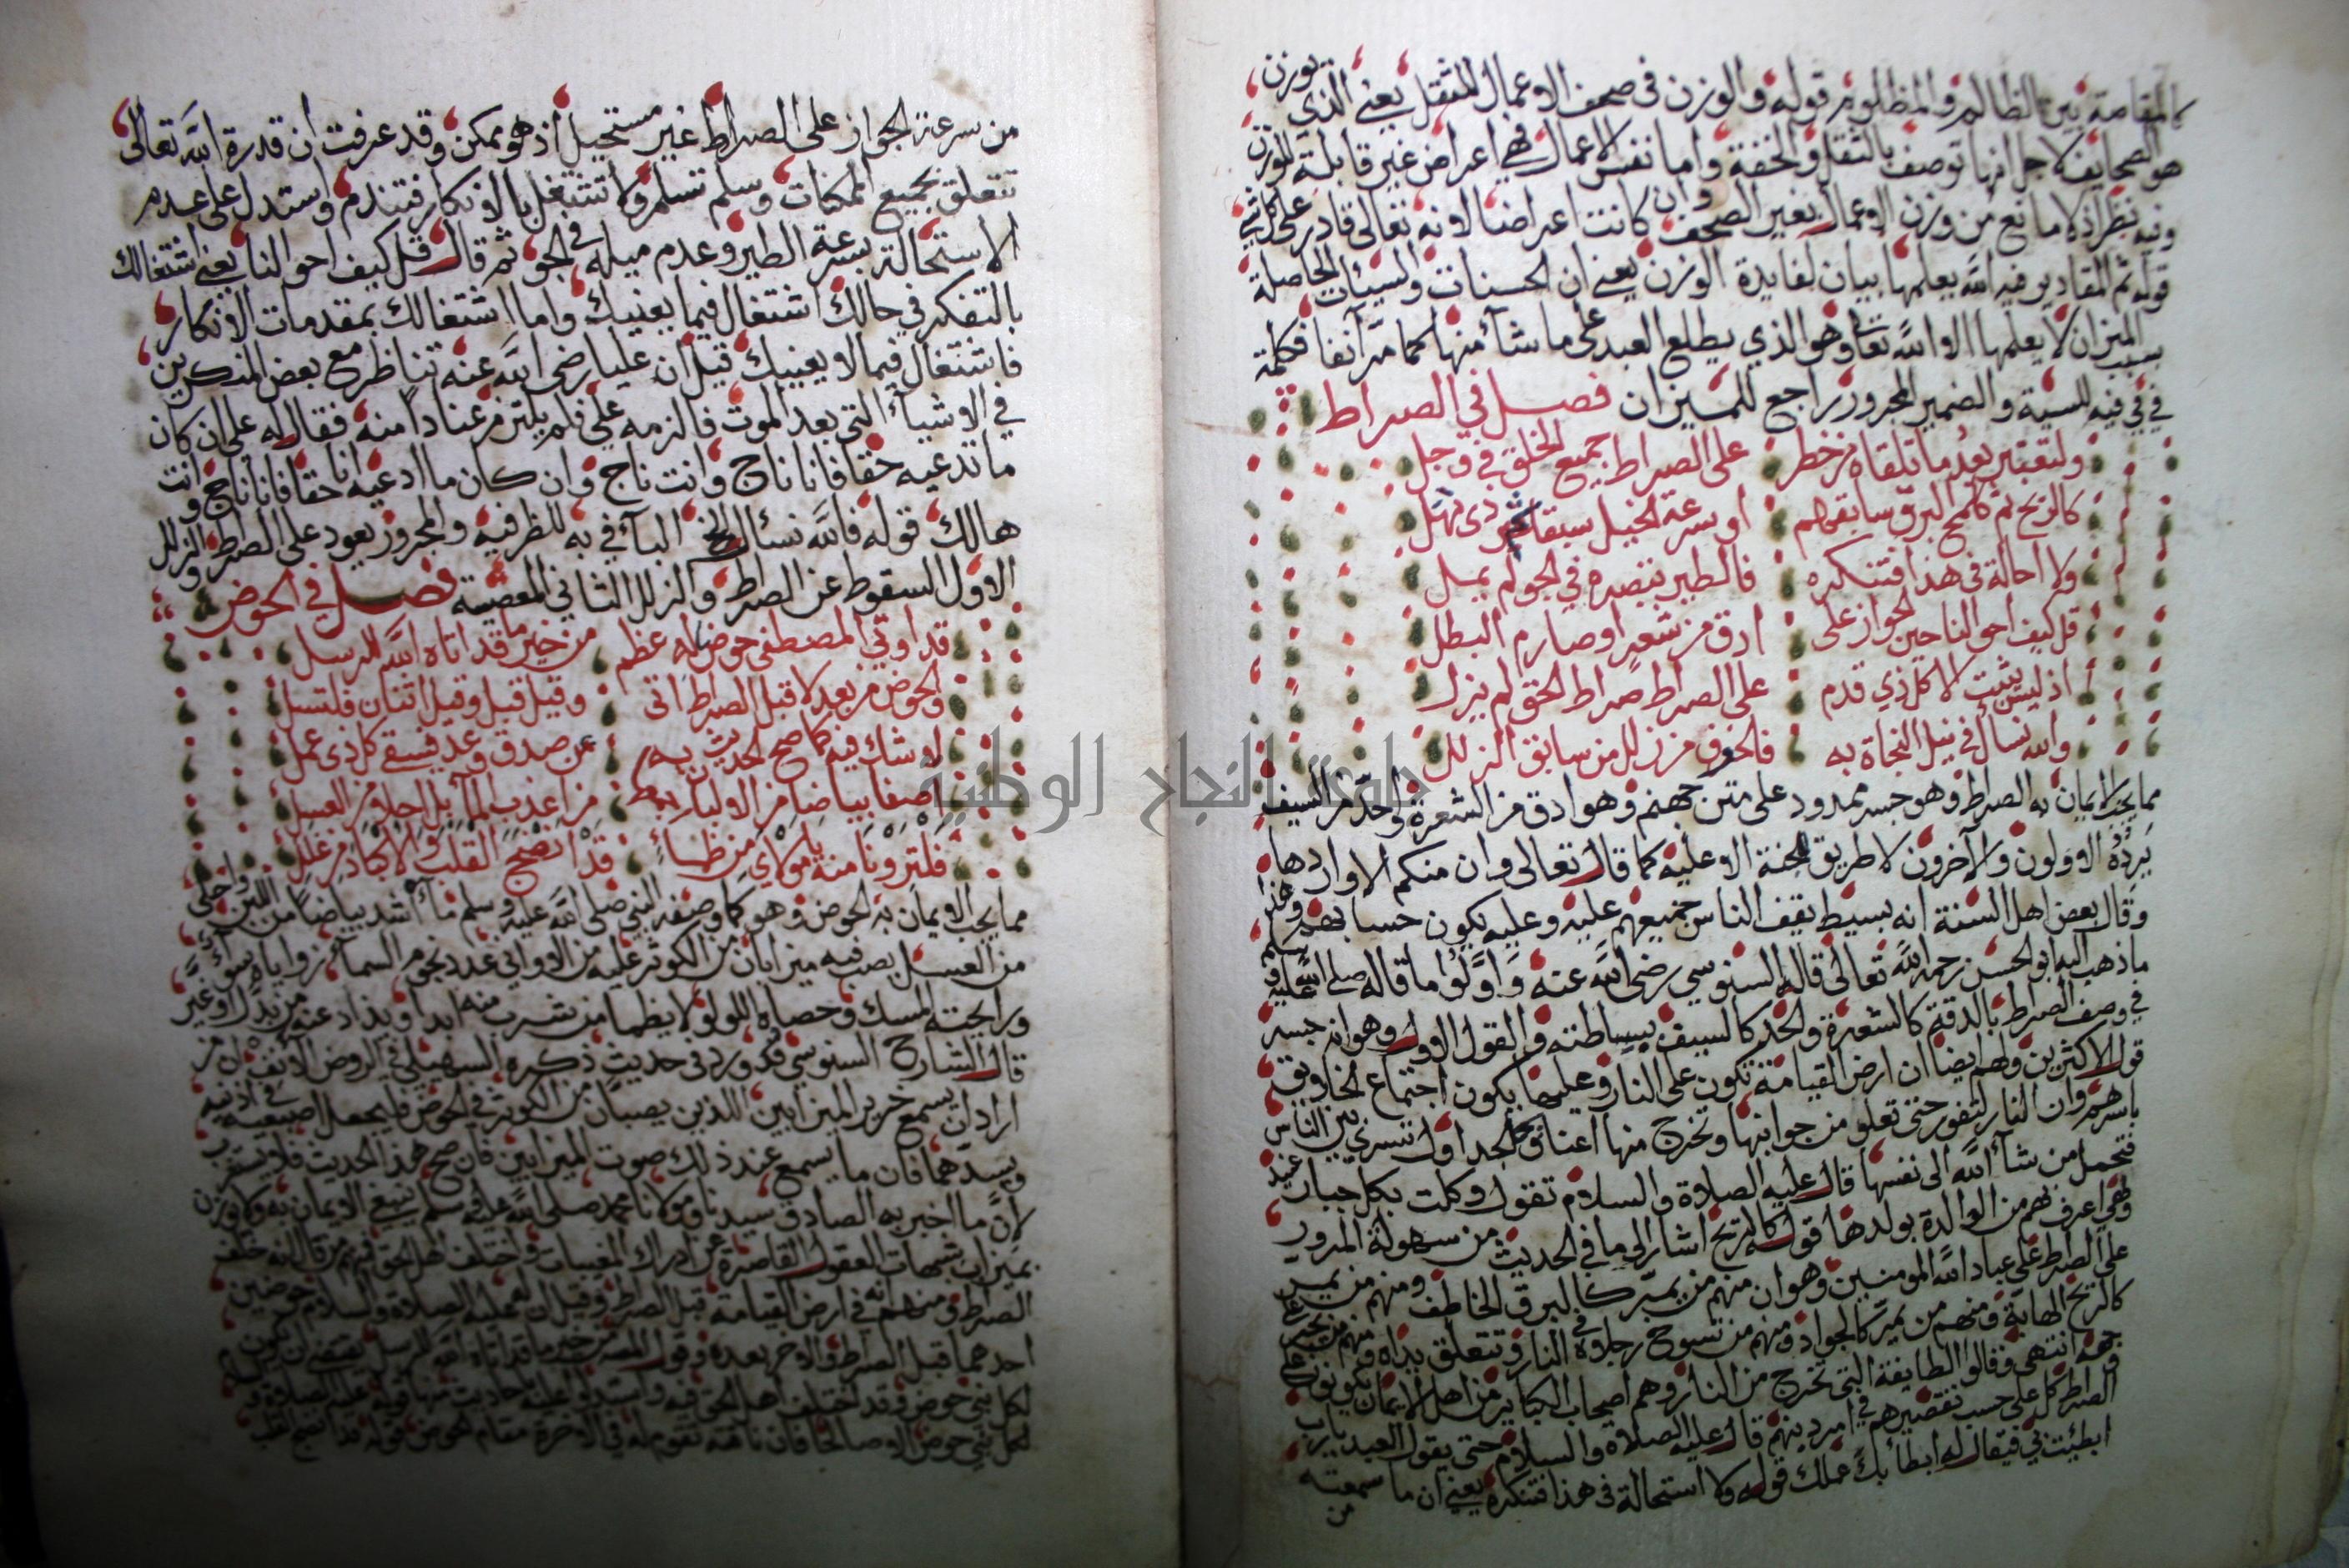 كالمقامة بين الظالم والمظلوم قوله والوزن في صحف الاعمال للثقل يعني الذي يوزن
هو الصحايف لاجل انها توصف بالثقل والخفة واما نفس الاعمال فهي اعراض غير قابلة للوزن
وفيه نظر اذ لا مانع من وزن الاعمال بغير الصحف وان كانت اعراضا لانه تعالى قادر على كل شي
قوله ثم المقادير فيه الله يعلمها بيان لفايدة الوزن يعني ان الحسنات والسيئات الحاصلة
بسبب الميزان لا يعلمها الا الله تعالى وهو الذي يطلع العبد على ما شأ منها كما مر آنفا فكلمة
في في فيه للسببية والضمير المجرور راجع للميزان فصل في الصراط
ولتعتبر بعد ما تلقاه من خطر على الصراط جميع الخلق في وجل
كالريح ثم كلمح البرق سابقهم او سرعة الخيل سبقا ذي مهل
ولا احالة في هذا فتنكره فالطير تبصره في الجو لم يمل
قل كيف احوالنا حين الجواز على ادق من شعر او صارم البطل
اذ ليس يثبت الا كل ذي قدم على الصراط صراط الحق لم يزل
والله نسأل في نيل النجاة به فالخوف من زلل من سابق الزلل
مما يجب الايمان به الصراط وهو جسر ممدود على متن جهنم وهو ادق من الشعرة واحد من السيف
يرده الاولون والآخرون لا طريق للجنة الا عليه كما قال تعالى وان منكم الا واردها
وقال بعض اهل السنة انه بسيط يقف الناس جميعهم عليه وعليه يكون حسابهم
ما ذهب اليه ابو الحسن رحمه الله تعالى قاله السنوسي رضي الله عنه واولوا ما قاله صلى الله عليه وسلم
في وصف الصراط بالدقة كالشعرة والحد كالسيف ببساطته والقول الاول وهو انه جسر
قول الاكثرين ولهم ايضا ان ارض القيامة تكون على النار وعليها يكون اجتماع الخلايق
باسرهم وان النار لتفور حتى تعلو من جوانبها وتخرج منها اعناق كالجداول تسري بين الناس
فتحمل من شأ الله الى نفسها قال عليه الصلاة والسلام تقول وكلت بكل جبار عنيد
وهي اعرف بهم من الوالدة بولدها قوله كالريح اشار الى ما في الحديث من سهولة المرور
على الصراط على عباد الله المومنين وهو ان منهم من يمر كالبرق الخاطف ومنهم من يمر
كالريح الهابة ومنهم من يمر كالجواد ومنهم من تسوخ رجلاه في النار وتتعلق يداه ومنهم من
جهنم انتهى وقالوا الطايفة التي تخرج من النار وهم اصحاب الكباير من اهل الايمان يكونون على
الصراط كل على حسب تقصيرهم في امر دينهم قال عليه الصلاة والسلام حتى يقول العبد يا رب
ابطئت بي فيقال له ابطأ بك عملك قوله ولا استحالة في هذا فتنكره يعني ان ما سمعته
من
من سرعة الجواز على الصراط غير مستحيل اذ هو ممكن وقد عرفت ان قدرة الله تعالى
تتعلق بجميع الممكنات وسلم تسلم ولا تشتغل بالانكار فتندم واستدل على عدم
الاستحالة بسرعة الطير وعدم ميله في الجو ثم قال قل كيف احوالنا يعني اشتغالك
بالتفكر في حالك اشتغال فيما يعنيك واما اشتغالك بمقدمات الانكار
فاشتغال فيما لا يعنيك قيل ان عليا رضي الله عنه تناظر مع بعض المنكرين
في الاشيأ التي بعد الموت فالزمه علي فلم يلتزم عنادا منه فقال له علي ان كان
ما تدعيه حقا فانا ناج وانت ناج وان كان ما ادعيه انا حقا فانا ناج وانت
هالك قوله فالله نسأل الخ البأ في به للظرفية والمجرور يعود على الصراط والزلل
الاول السقوط عن الصراط والزلل الثاني المعصية فصل في الحوض
قد اوتي المصطفى حوضا له عظم من خير ما قد اتاه الله للرسل
والحوض من بعد لا قبل الصراط اتى وقيل قبل وقيل اثنان فلتسل
لا شك فيه كما صح الحديث به عن صدق وعد فيسقى كل ذي عمل
اصفا بياضا من الالبان من اعذب المأ بل احلا من العسل
فلترونا منه يا مولاي من ظمأ قد انضج القلب والاكباد من غلل
مما يجب الايمان به الحوض وهو كما وصفه النبي صلى الله عليه وسلم مأ اشد بياضا من اللبن واحلى
من العسل يصب فيه ميزابان من الكوثر عليه من الاواني عدد نجوم السمأ زواياه سوأ
ورايحته المسك وحصاه اللولو لا يظما من شرب منه ابدا ويذاد عنه من بدل او غير
قال الشارح السنوسي قد ورد في حديث ذكره السهيلي في الروض الانف ان من
اراد ان يسمع خرير الميزابين اللذين يصبان من الكوثر في الحوض فليجعل اصبعيه في اذنيه
ويسدهما فان ما يسمع عند ذلك صوت الميزابين فان صح هذا الحديث فلا يستغرب
لان ما اخبر به الصادق سيدنا ومولانا محمد صلى الله عليه وسلم ينبغي الايمان به ولا يوزن
بميزان شبهات العقول القاصرة عن ادراك المغيبات واختلف اهل الحق فمنهم من قال انه خلف
الصراط ومنهم انه في ارض القيامة قبل الصراط وقيل ان له عليه الصلاة والسلام حوضين
احدهما قبل الصراط والاخر بعده وقول من خير ما قد اتاه الله للرسل يقتضي ان يكون
لكل نبي حوض وقد اختلف اهل الحق فيه واستدلوا عليه باحاديث منها قوله عليه الصلاة و
لكل نبي حوض الا صالحا فان ناقته تقوم له في الاخرة مقام الحوض قوله قد انضج القلب
جامعة النجاح الوطنية